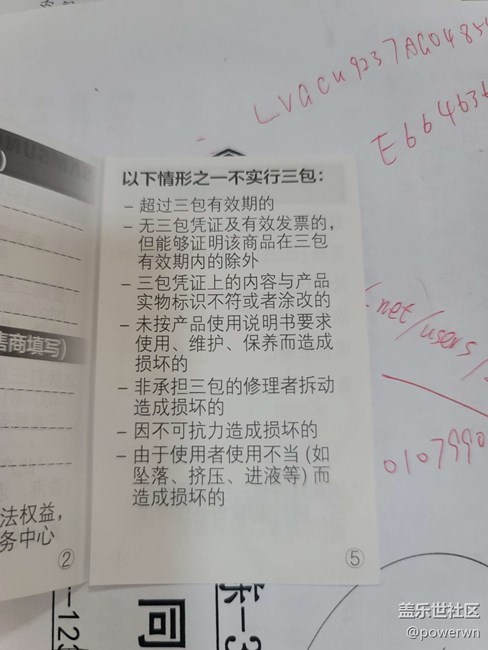 以下情形之一不实行三包：
– 超过三包有效期的
– 无三包凭证及有效发票的，
但能够证明该商品在三包
有效期内的除外
– 三包凭证上的内容与产品
实物标识不符或者涂改的
– 未按产品使用说明书要求
使用、维护、保养而造成
损坏的
– 非承担三包的修理者拆动
造成损坏的
– 因不可抗力造成损坏的
– 由于使用者使用不当 (如
坠落、挤压、进液等) 而
造成损坏的
⑤
售商填写)
法权益，
务中心
②
.net/users/
0107990
-12
间
盖乐世社区
@powerwn